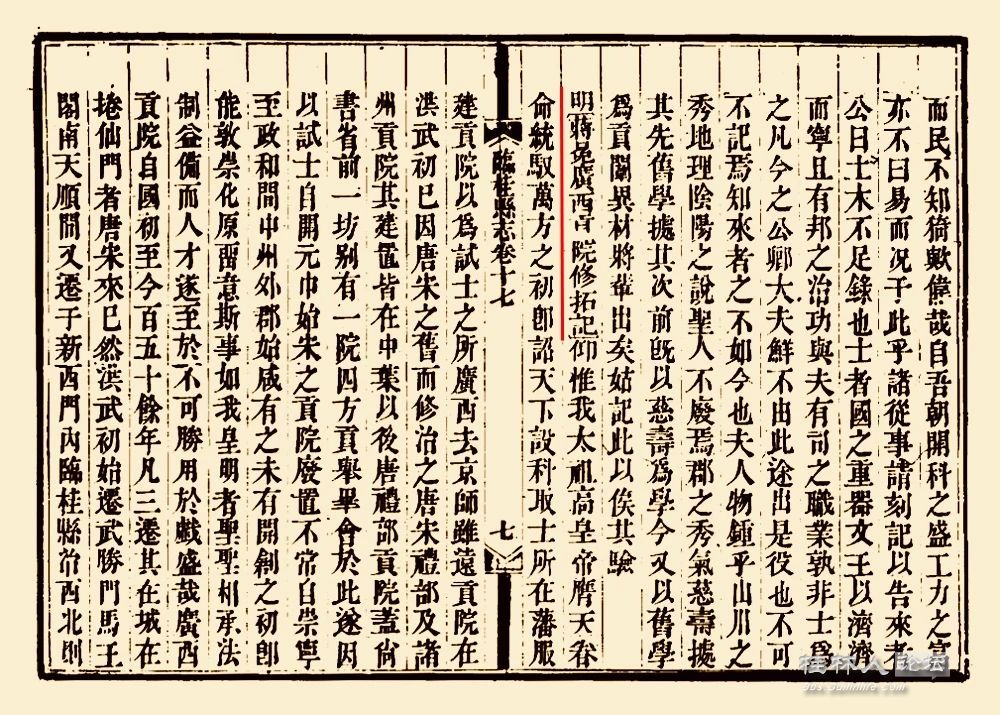 而民不知猗歟偉哉自吾朝開科之盛工力之富
亦不曰易而况于此乎諸從事請刻記以告來者
公曰土木不足錄也士者國之重器文王以濟濟
而寧且有邦之治功與夫有司之職業孰非士爲
之凡今之公卿大夫鮮不由此途出是役也不可
不記焉知來者之不如今也夫人物鍾乎山川之
秀地理陰陽之說聖人不廢焉郡之秀氣慈壽據
其先舊學據其次前旣以慈壽爲學今又以舊學
爲貢闈異材將輩出矣姑記此以俟其驗
明蔣冕廣西貢院修拓記仰惟我太祖高皇帝膺天眷
命統馭萬方之初卽詔天下設科取士所在藩服
臨桂縣志卷十七
七
建貢院以爲試士之所廣西去京師雖遠貢院在
洪武初已因唐宋之舊而修治之唐宋禮部及諸
州貢院其建置皆在中葉以後唐禮部貢院蓋尙
書省前一坊别有一院四方貢舉畢會於此遂因
以試士自開元中始宋之貢院廢置不常自崇寧
至政和間中州外郡始咸有之未有開創之初卽
能敦崇化原畱意斯事如我皇明者聖聖相承法
制益備而人才遂至於不可勝用於戲盛哉廣西
貢院自國初至今百五十餘年凡三遷其在城在
捲仙門者唐宋來已然洪武初始遷武勝門馬王
閣南天順間又遷于新西門內臨桂縣治西北則
桂林人论坛
bbs.guilinlife.com